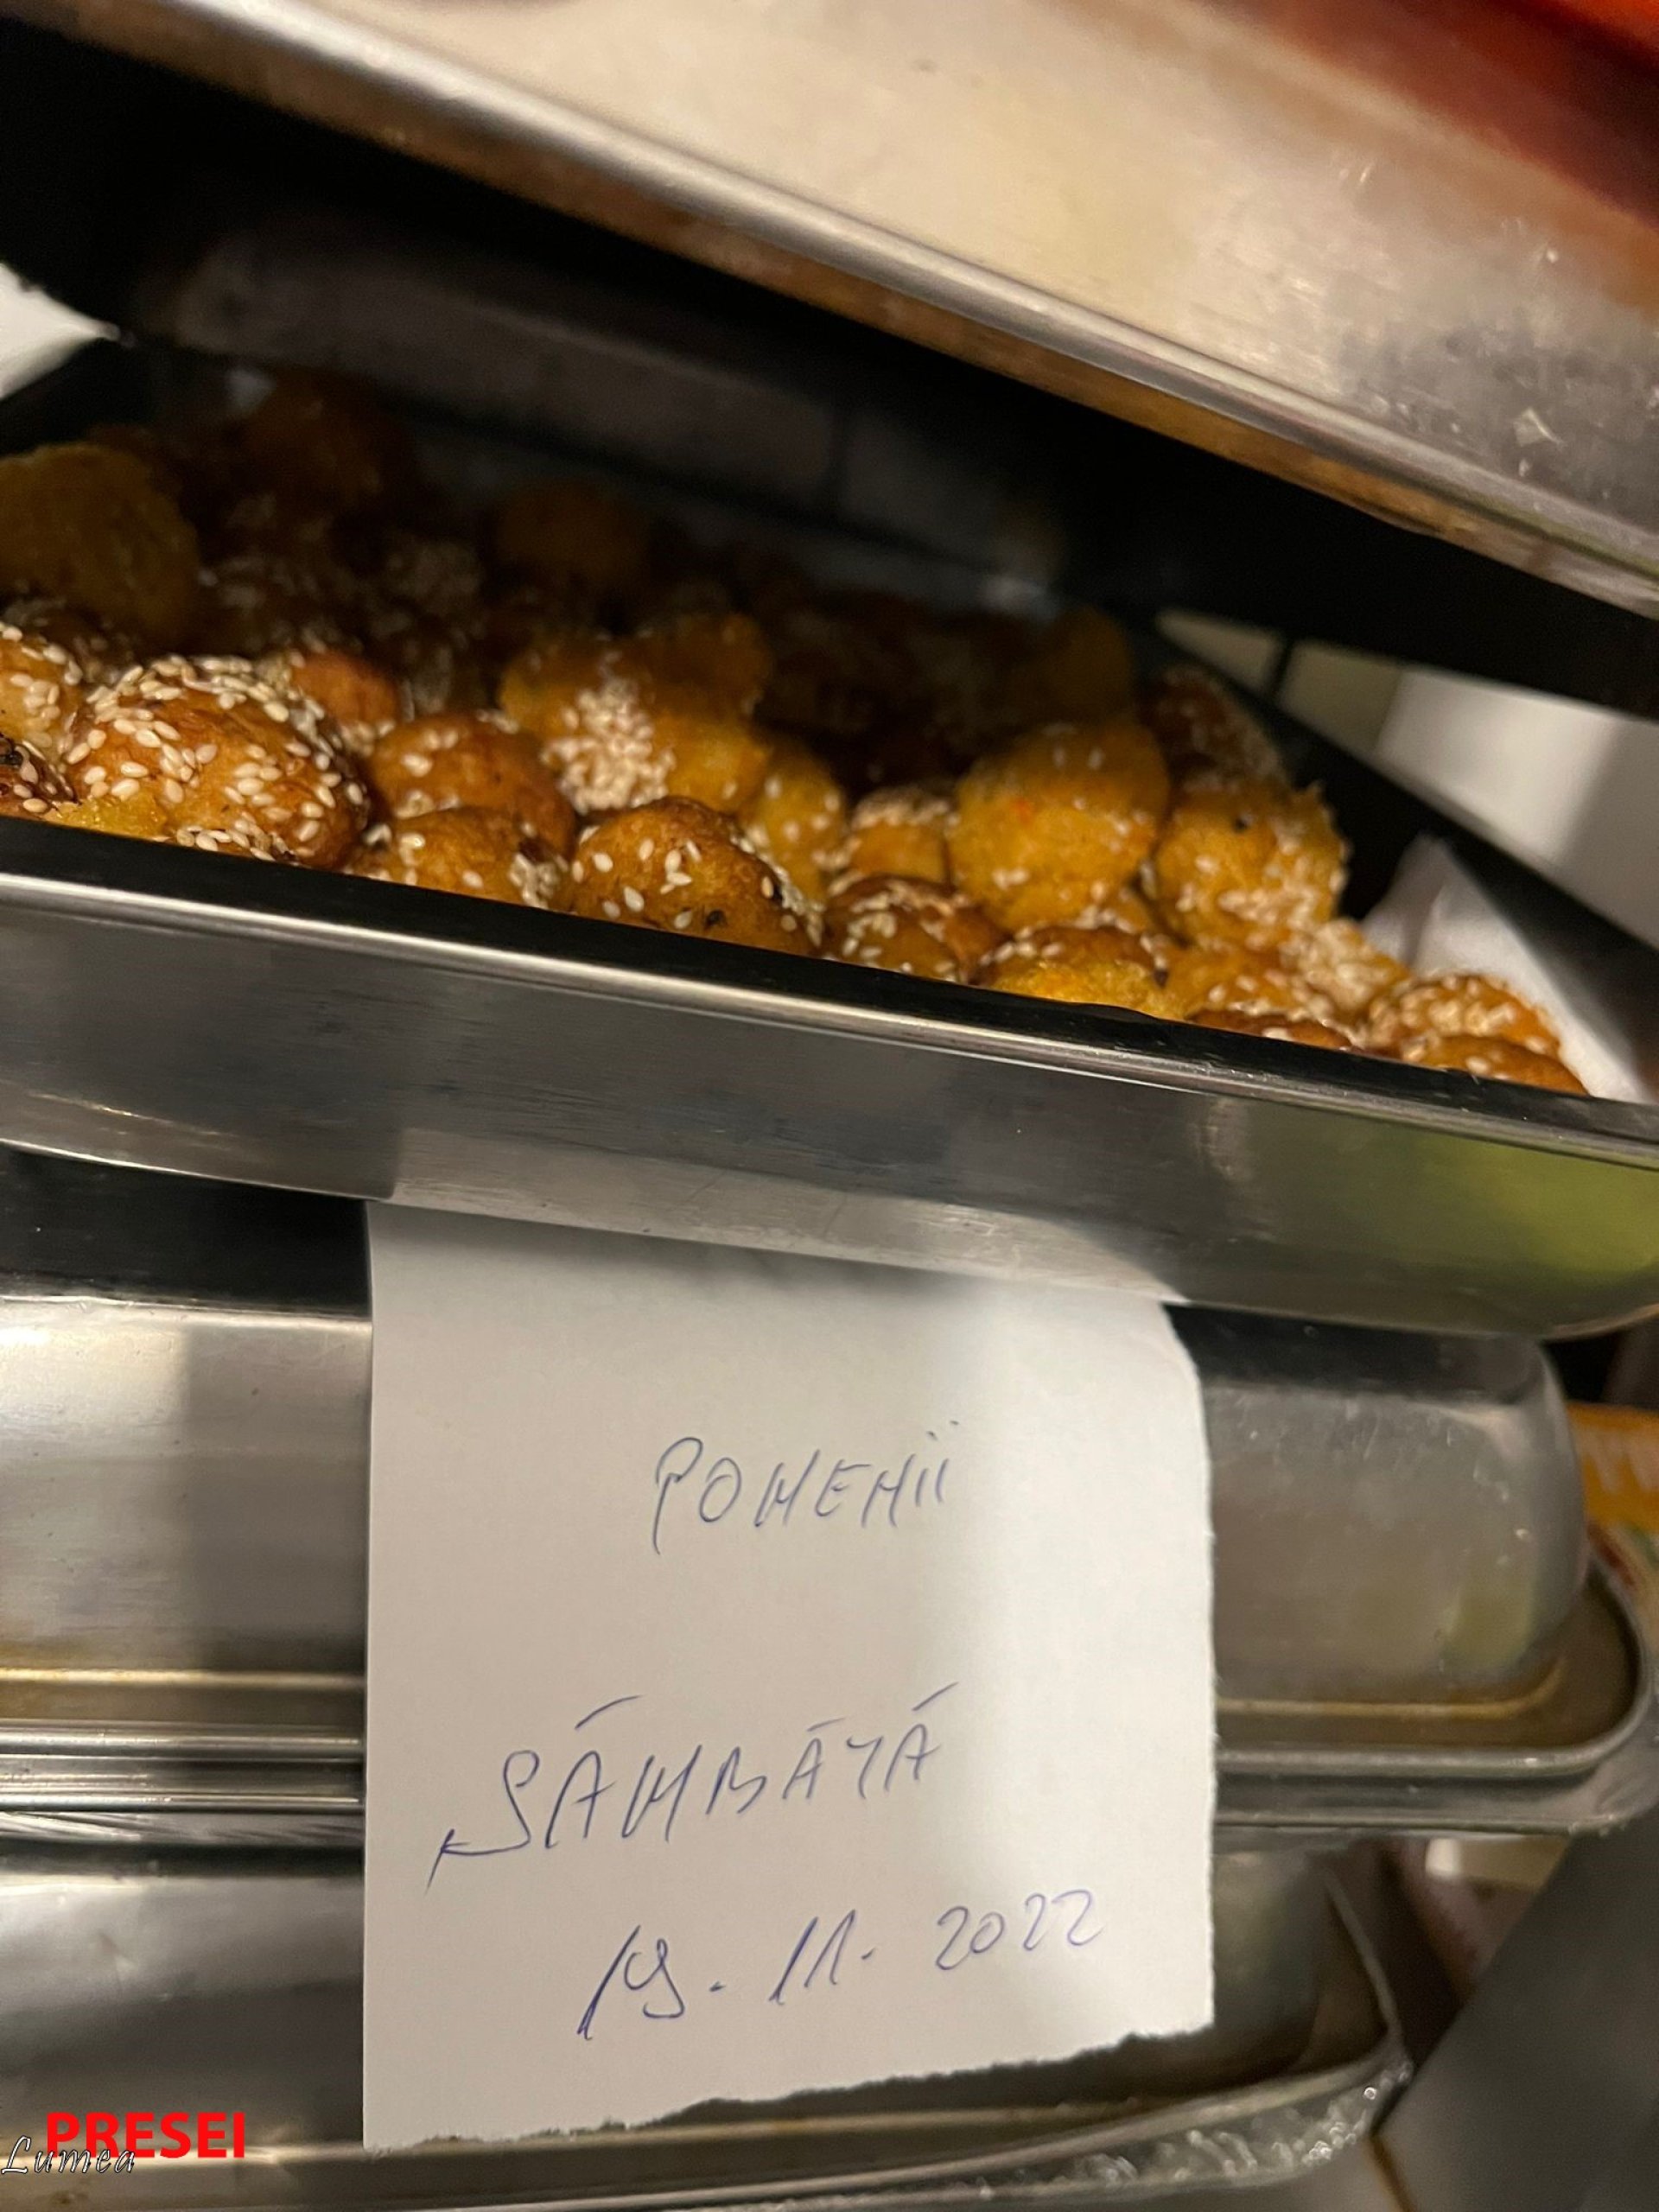 POMENII
SÂMBĂTĂ
19.11.2022
PRESEI
Lumea